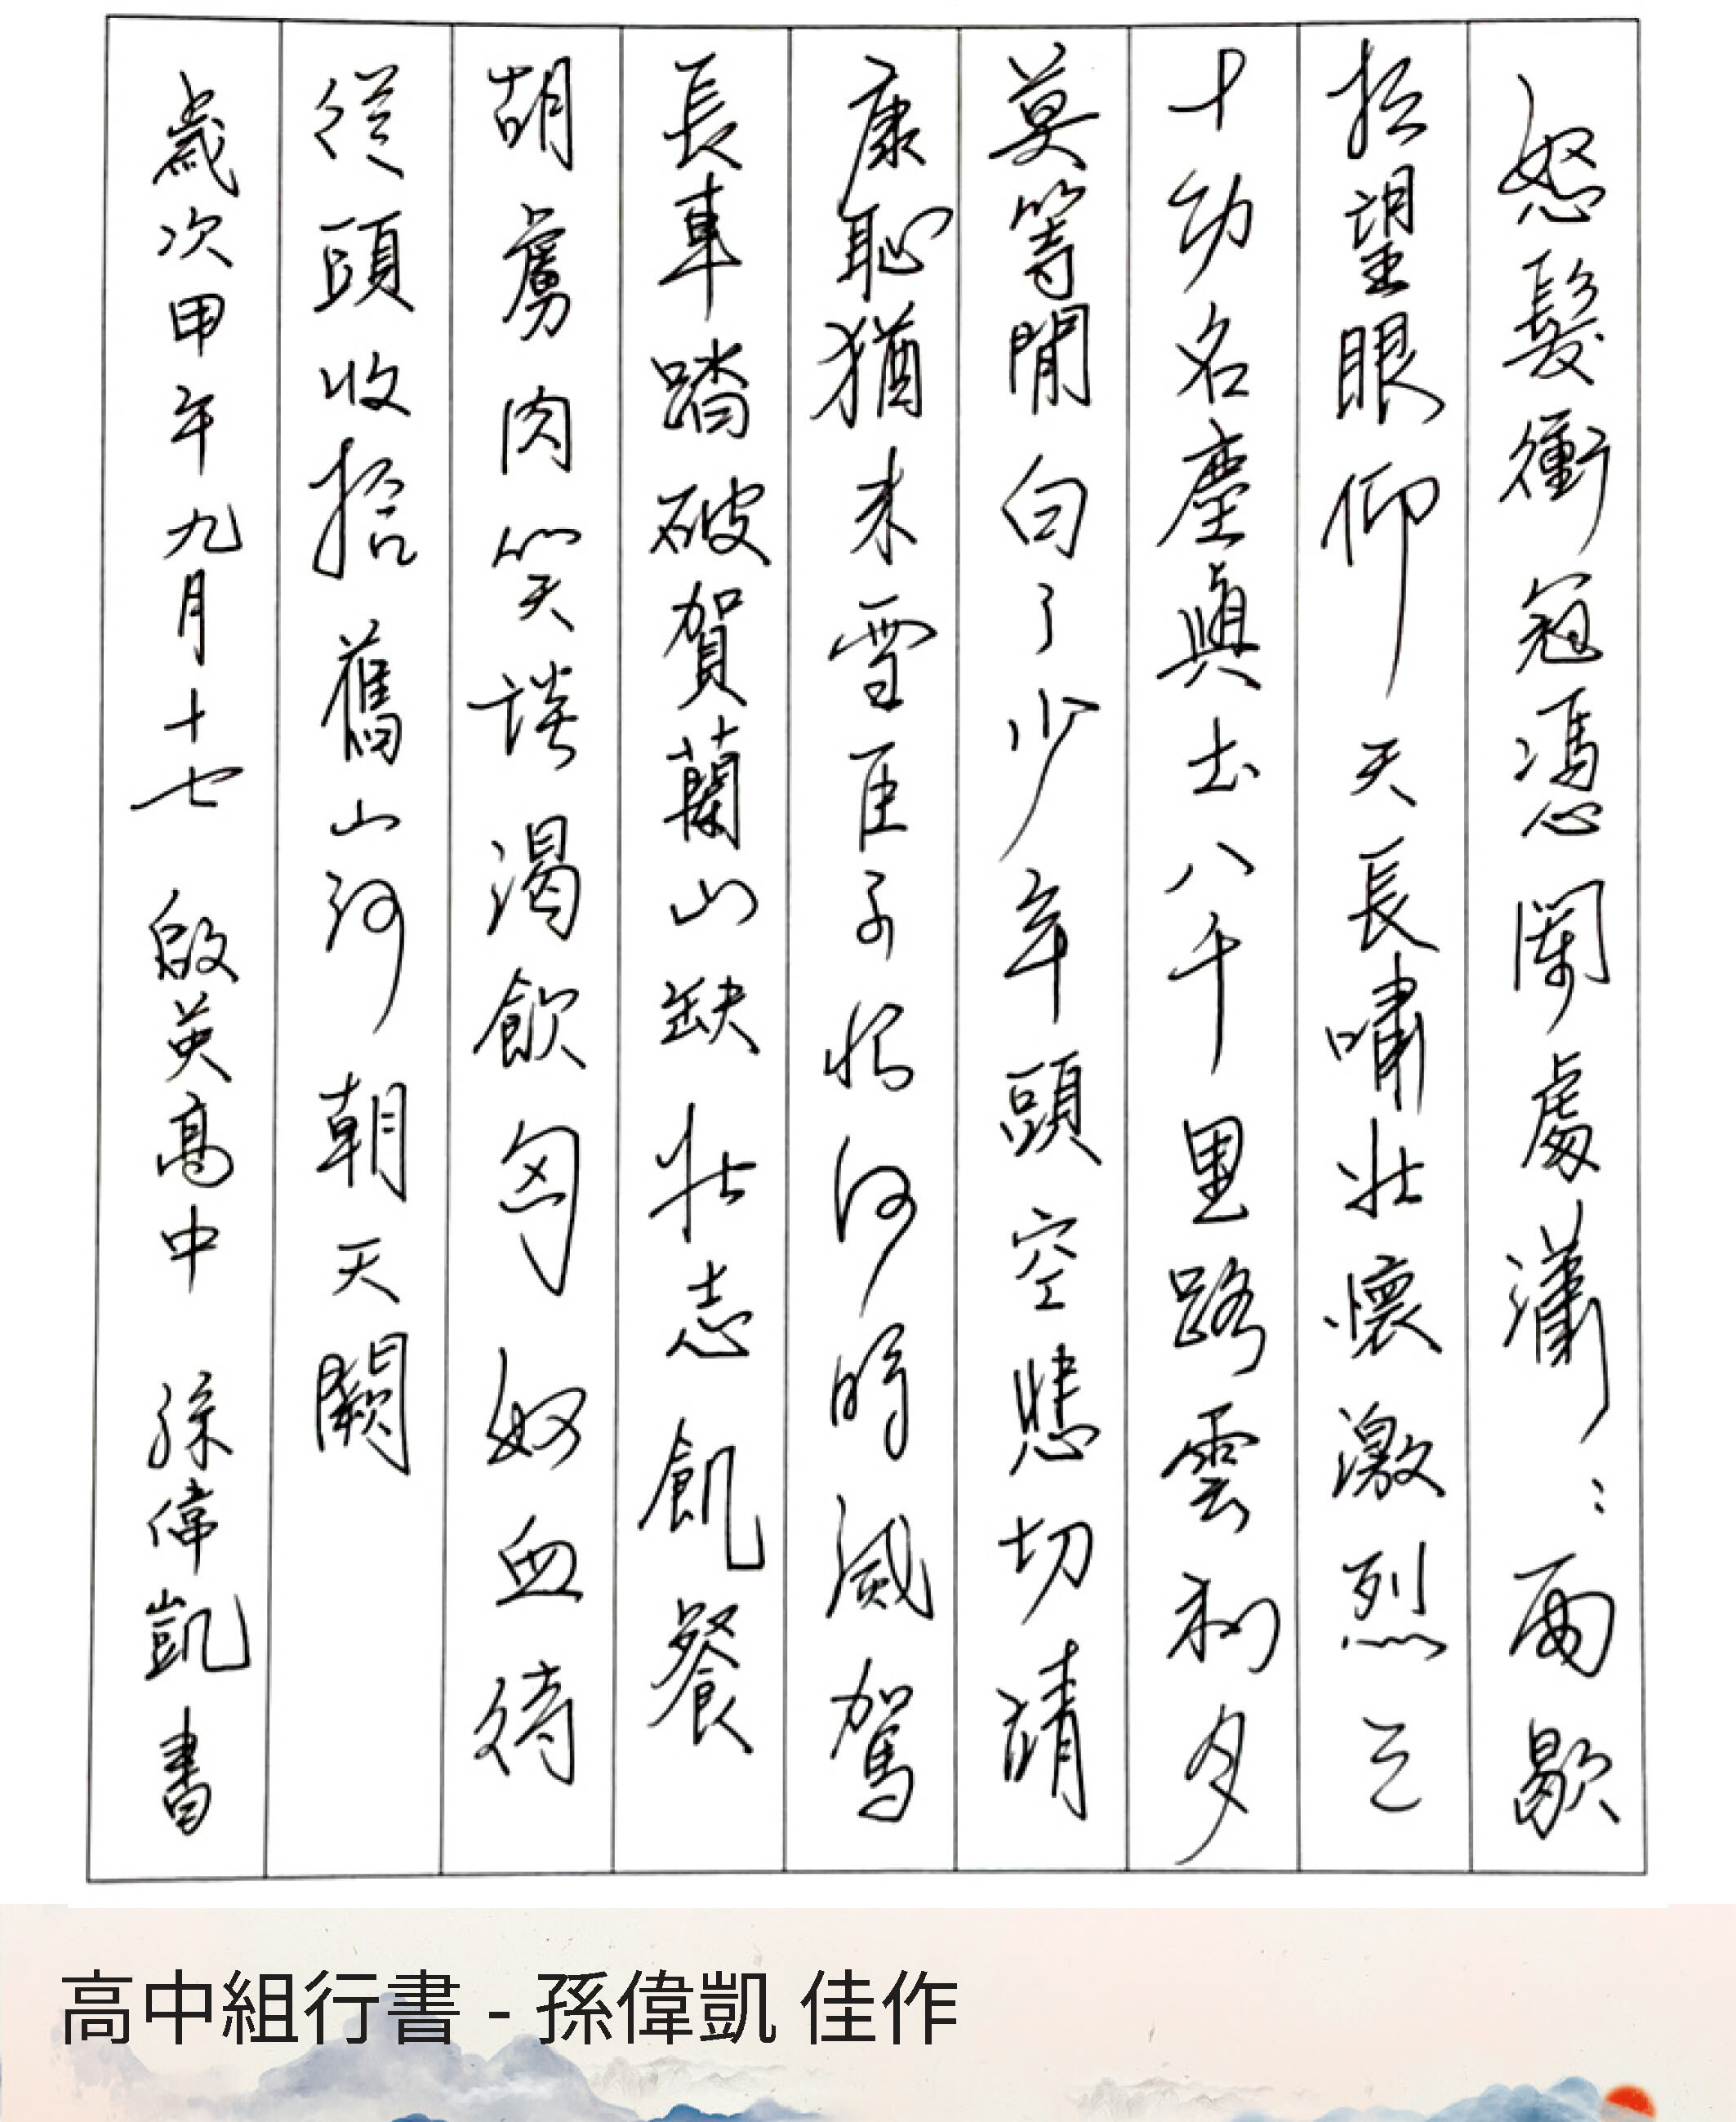 怒髮衝冠憑闌處瀟:雨歇
抬望眼仰天長嘯壯懷激烈三
十功名塵與土八千里路雲和月
莫等閒白了少年頭空悲切靖
康恥猶未雪臣子恨何時滅駕
長車踏破賀蘭山缺壯志飢餐
胡虜肉笑談渴飲匈奴血待
從頭收拾舊山河朝天闕
歲次甲午九月十七 啟英高中 孫偉凱書
高中組行書 - 孫偉凱 佳作